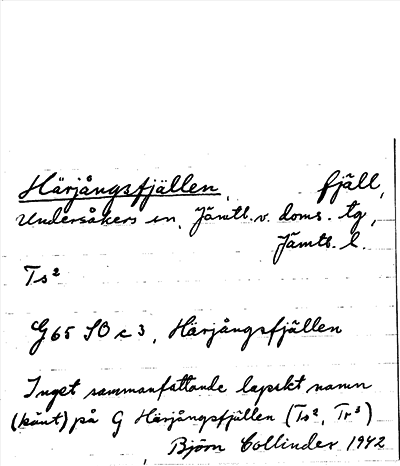 Härjångsfjällen, fjäll,
Undersåkers sn, Jämtl. v. doms. tg,
Jämtl. l.
Ts²
G 65 SO c 3, Härjångsfjällen
Inget sammanfattande lapskt namn
(känt) på G Härjångsfjällen (Ts², Tr³)
Björn Collinder 1942